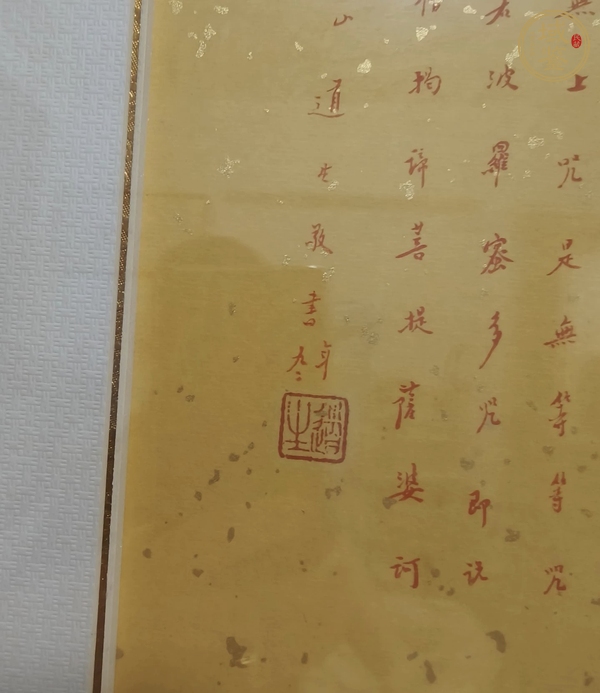 無上咒是無等等咒
若波羅蜜多咒即說
揭諦菩提薩婆訶
山道生敬書
年九二